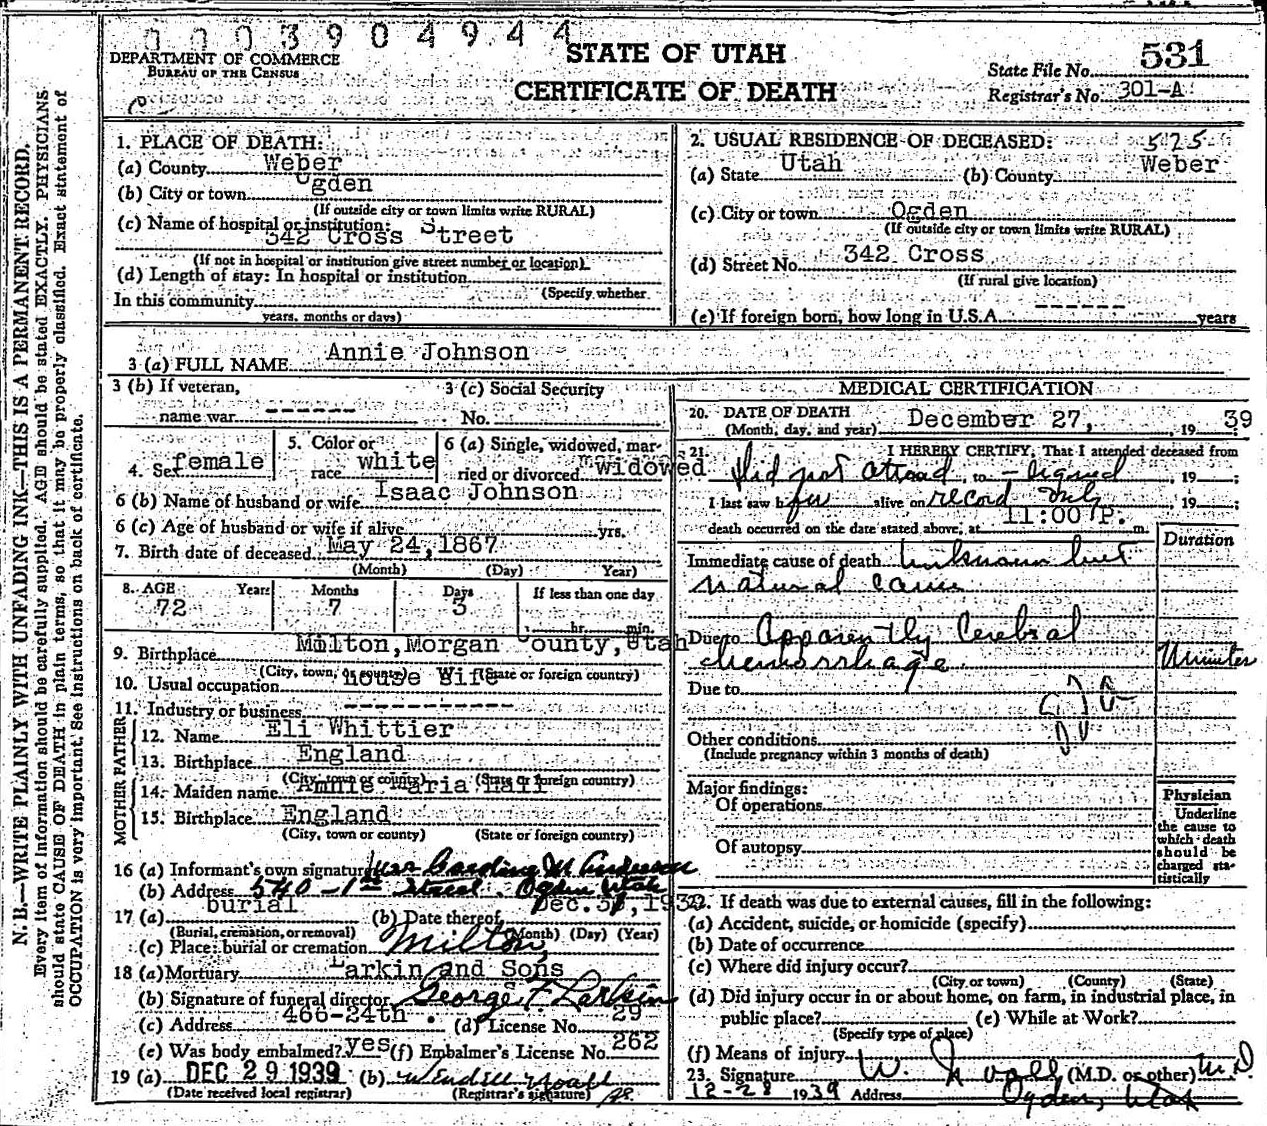 0003904944
DEPARTMENT OF COMMERCE
BUREAU OF THE CENSUS
STATE OF UTAH
CERTIFICATE OF DEATH
State File No. 531
Registrar's No. 301-A
N. B.—WRITE PLAINLY WITH UNFADING INK—THIS IS A PERMANENT RECORD.
Every item of information should be carefully supplied. AGE should be stated EXACTLY. PHYSICIANS
should state CAUSE OF DEATH in plain terms, so that it may be properly classified. Exact statement of
OCCUPATION is very important. See instructions on back of certificate.
1. PLACE OF DEATH:
(a) County Weber
(b) City or town Ogden
(If outside city or town limits write RURAL)
(c) Name of hospital or institution:
342 Cross Street
(If not in hospital or institution give street number or location)
(d) Length of stay: In hospital or institution
(Specify whether
In this community
years, months or days)
2. USUAL RESIDENCE OF DECEASED: 575
(a) State Utah (b) County Weber
(c) City or town Ogden
(If outside city or town limits write RURAL)
(d) Street No. 342 Cross
(If rural give location)
(e) If foreign born, how long in U.S.A. ------ years
3 (a) FULL NAME Annie Johnson
3 (b) If veteran,
name war ------
3 (c) Social Security
No.
4. Sex female
5. Color or
race white
6 (a) Single, widowed, mar-
ried or divorced widowed
6 (b) Name of husband or wife Isaac Johnson
6 (c) Age of husband or wife if alive yrs.
7. Birth date of deceased May 24, 1867
(Month) (Day) Year)
8. AGE Years Months Days If less than one day
72 7 3 hr. min.
9. Birthplace Milton, Morgan County, Utah
(City, town, or county) (State or foreign country)
10. Usual occupation House Wife
11. Industry or business ------------
FATHER
12. Name Eli Whittier
13. Birthplace England
(City, town or county) (State or foreign country)
MOTHER
14. Maiden name Annie Maria Hall
15. Birthplace England
(City, town or county) (State or foreign country)
16 (a) Informant's own signature Mrs M Anderson
(b) Address 540 - 1st Street. Ogden Utah
17 (a) burial (b) Date thereof Dec. 1939
(Burial, cremation, or removal) (Month) (Day) (Year)
(c) Place: burial or cremation Milton,
18 (a) Mortuary Larkin and Sons
(b) Signature of funeral director George F. Larkin
(c) Address 466-24th . (d) License No. 29
(e) Was body embalmed? yes (f) Embalmer's License No. 262
19 (a) DEC 29 1939 (b) Wendell Noall
(Date received local registrar) (Registrar's signature)
MEDICAL CERTIFICATION
20. DATE OF DEATH
(Month, day, and year) December 27, 19 39
21. I HEREBY CERTIFY, That I attended deceased from
Did not attend, to - signed, 19 ;
I last saw h alive on record only, 19 ;
death occurred on the date stated above, at 11:00 P. m.
Duration
Immediate cause of death Unknown but
natural cause
Due to Apparently Cerebral
hemorrhage Minutes
Due to
Other conditions
(Include pregnancy within 3 months of death)
Major findings:
Of operations
Of autopsy
Physician
Underline
the cause to
which death
should be
charged sta-
tistically
22. If death was due to external causes, fill in the following:
(a) Accident, suicide, or homicide (specify)
(b) Date of occurrence
(c) Where did injury occur?
(City or town) (County) (State)
(d) Did injury occur in or about home, on farm, in industrial place, in
public place? (e) While at Work?
(Specify type of place)
(f) Means of injury
23. Signature W. (M.D. or other) M.D.
12-28 1939 Address Ogden, Utah